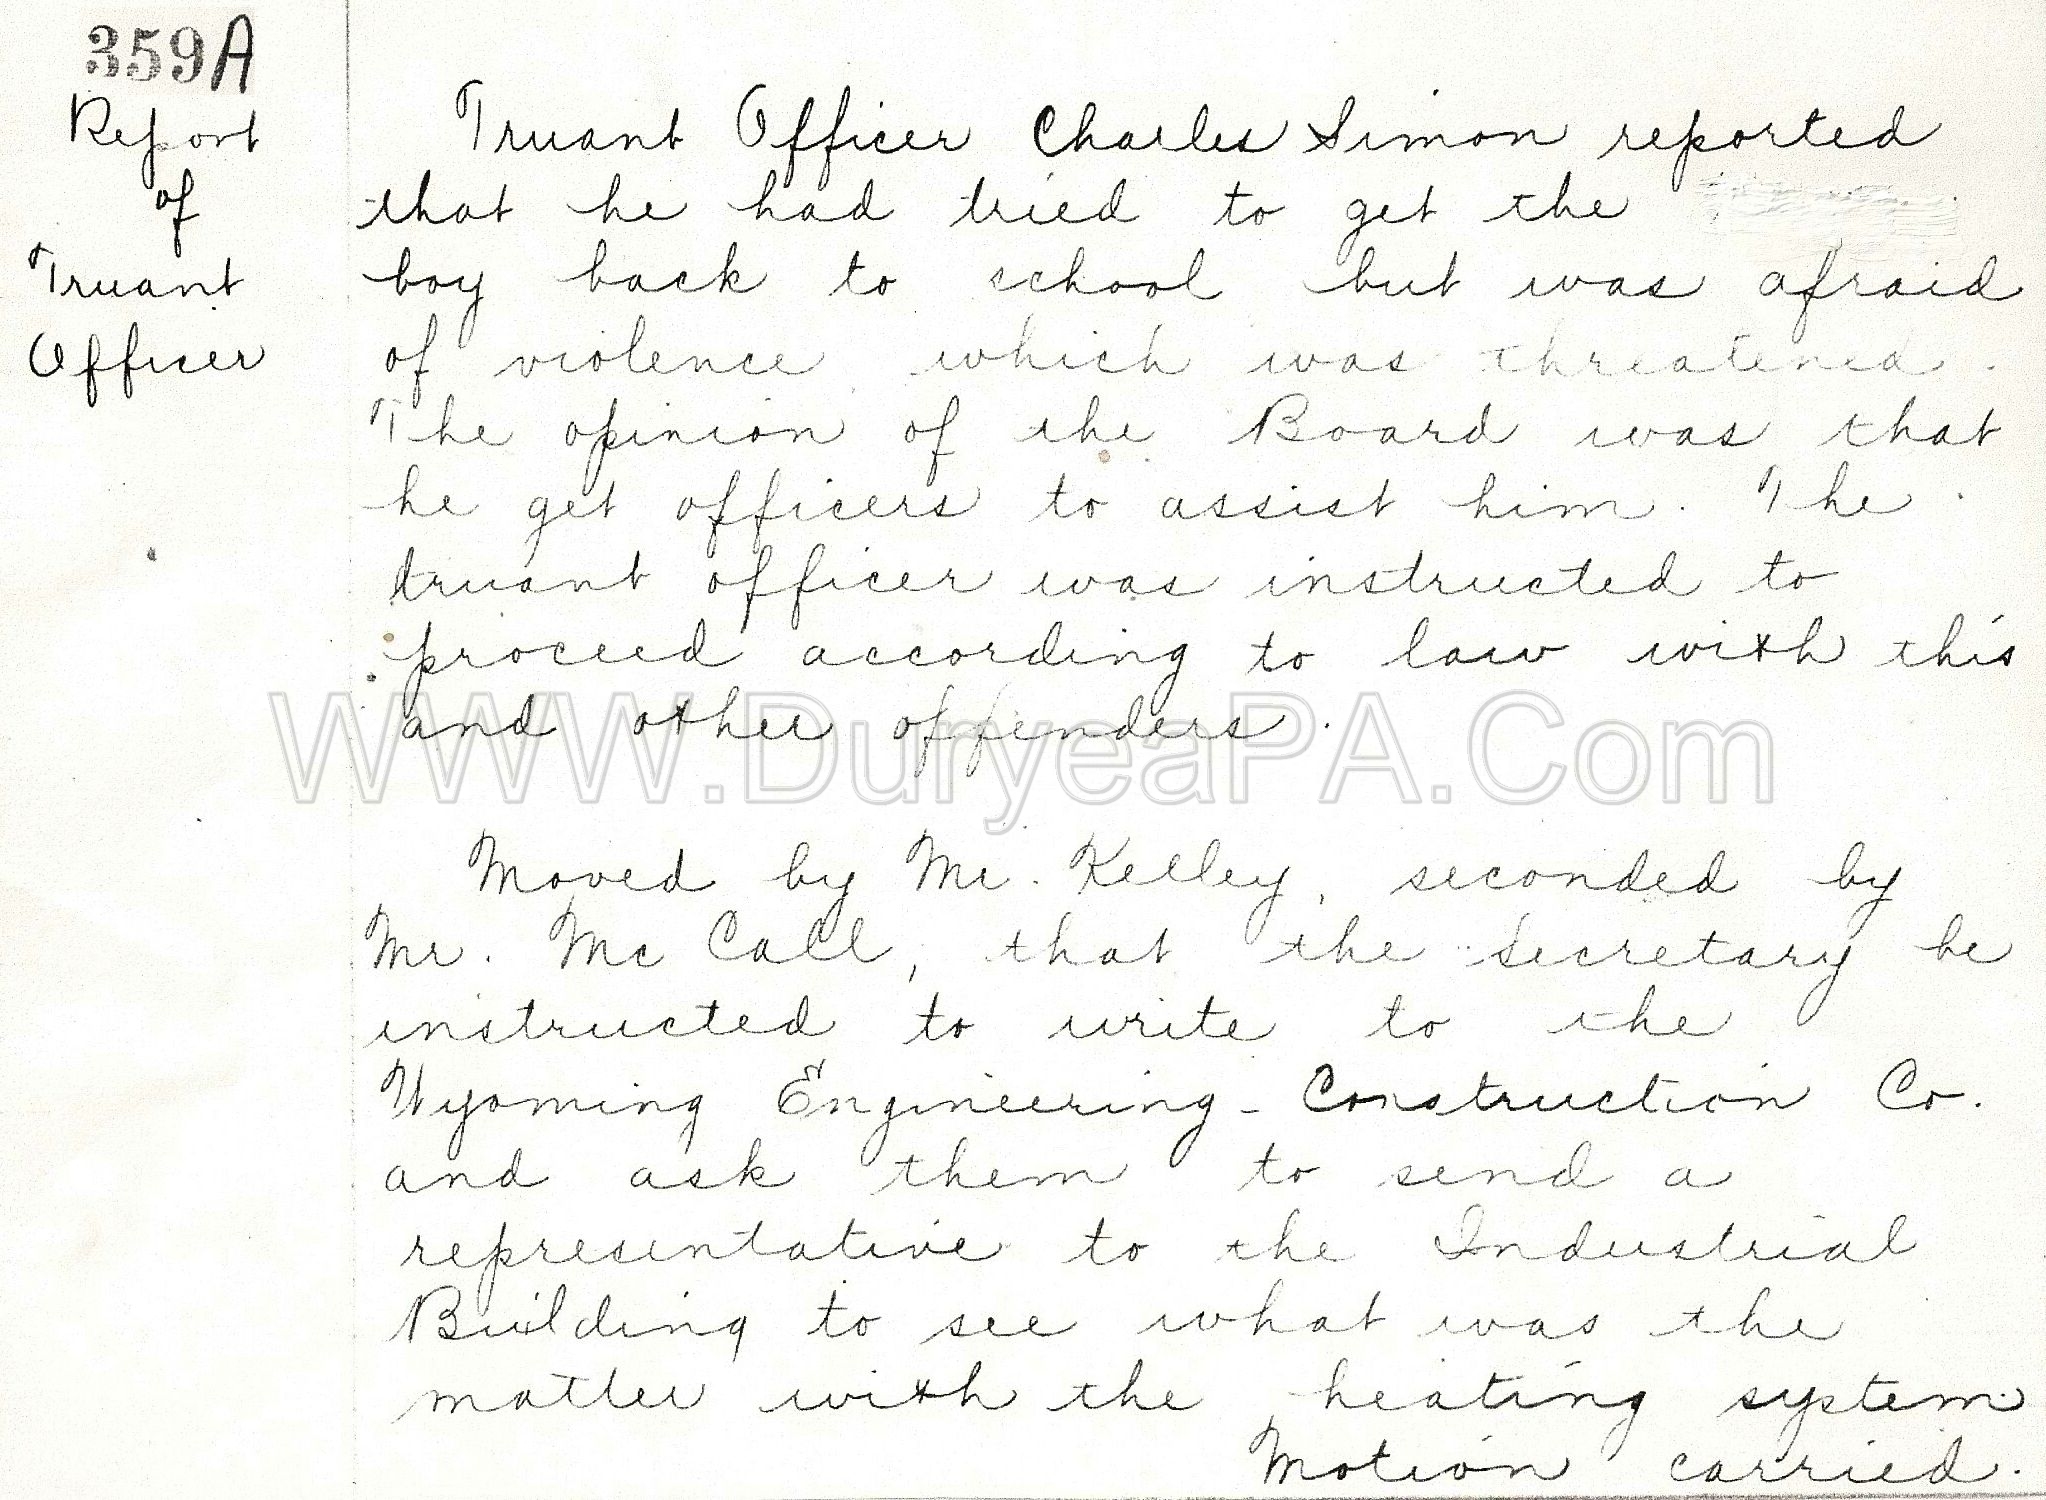 359A
Report
of
Truant
Officer
Truant Officer Charles Simon reported
that he had tried to get the
boy back to school but was afraid
of violence which was threatened.
The opinion of the Board was that
he get officers to assist him. The
truant officer was instructed to
proceed according to law with this
and other offenders.
WWW.DuryeaPA.Com
Moved by Mr. Kelley, seconded by
Mr. Mc Call, that the secretary be
instructed to write to the
Wyoming Engineering - Construction Co.
and ask them to send a
representative to the Industrial
Building to see what was the
matter with the heating system.
Motion carried.